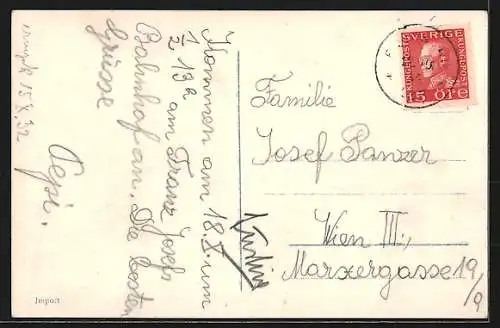 Kommen am 18.X. um
1/2 13h am Franz Josefs
Bahnhof an. Die besten
Grüsse
Pepi.
15.X.32
Import
SVERIGE
15 ÖRE
Familie
Josef Panzer
Wien III.,
Marxergasse 19/9